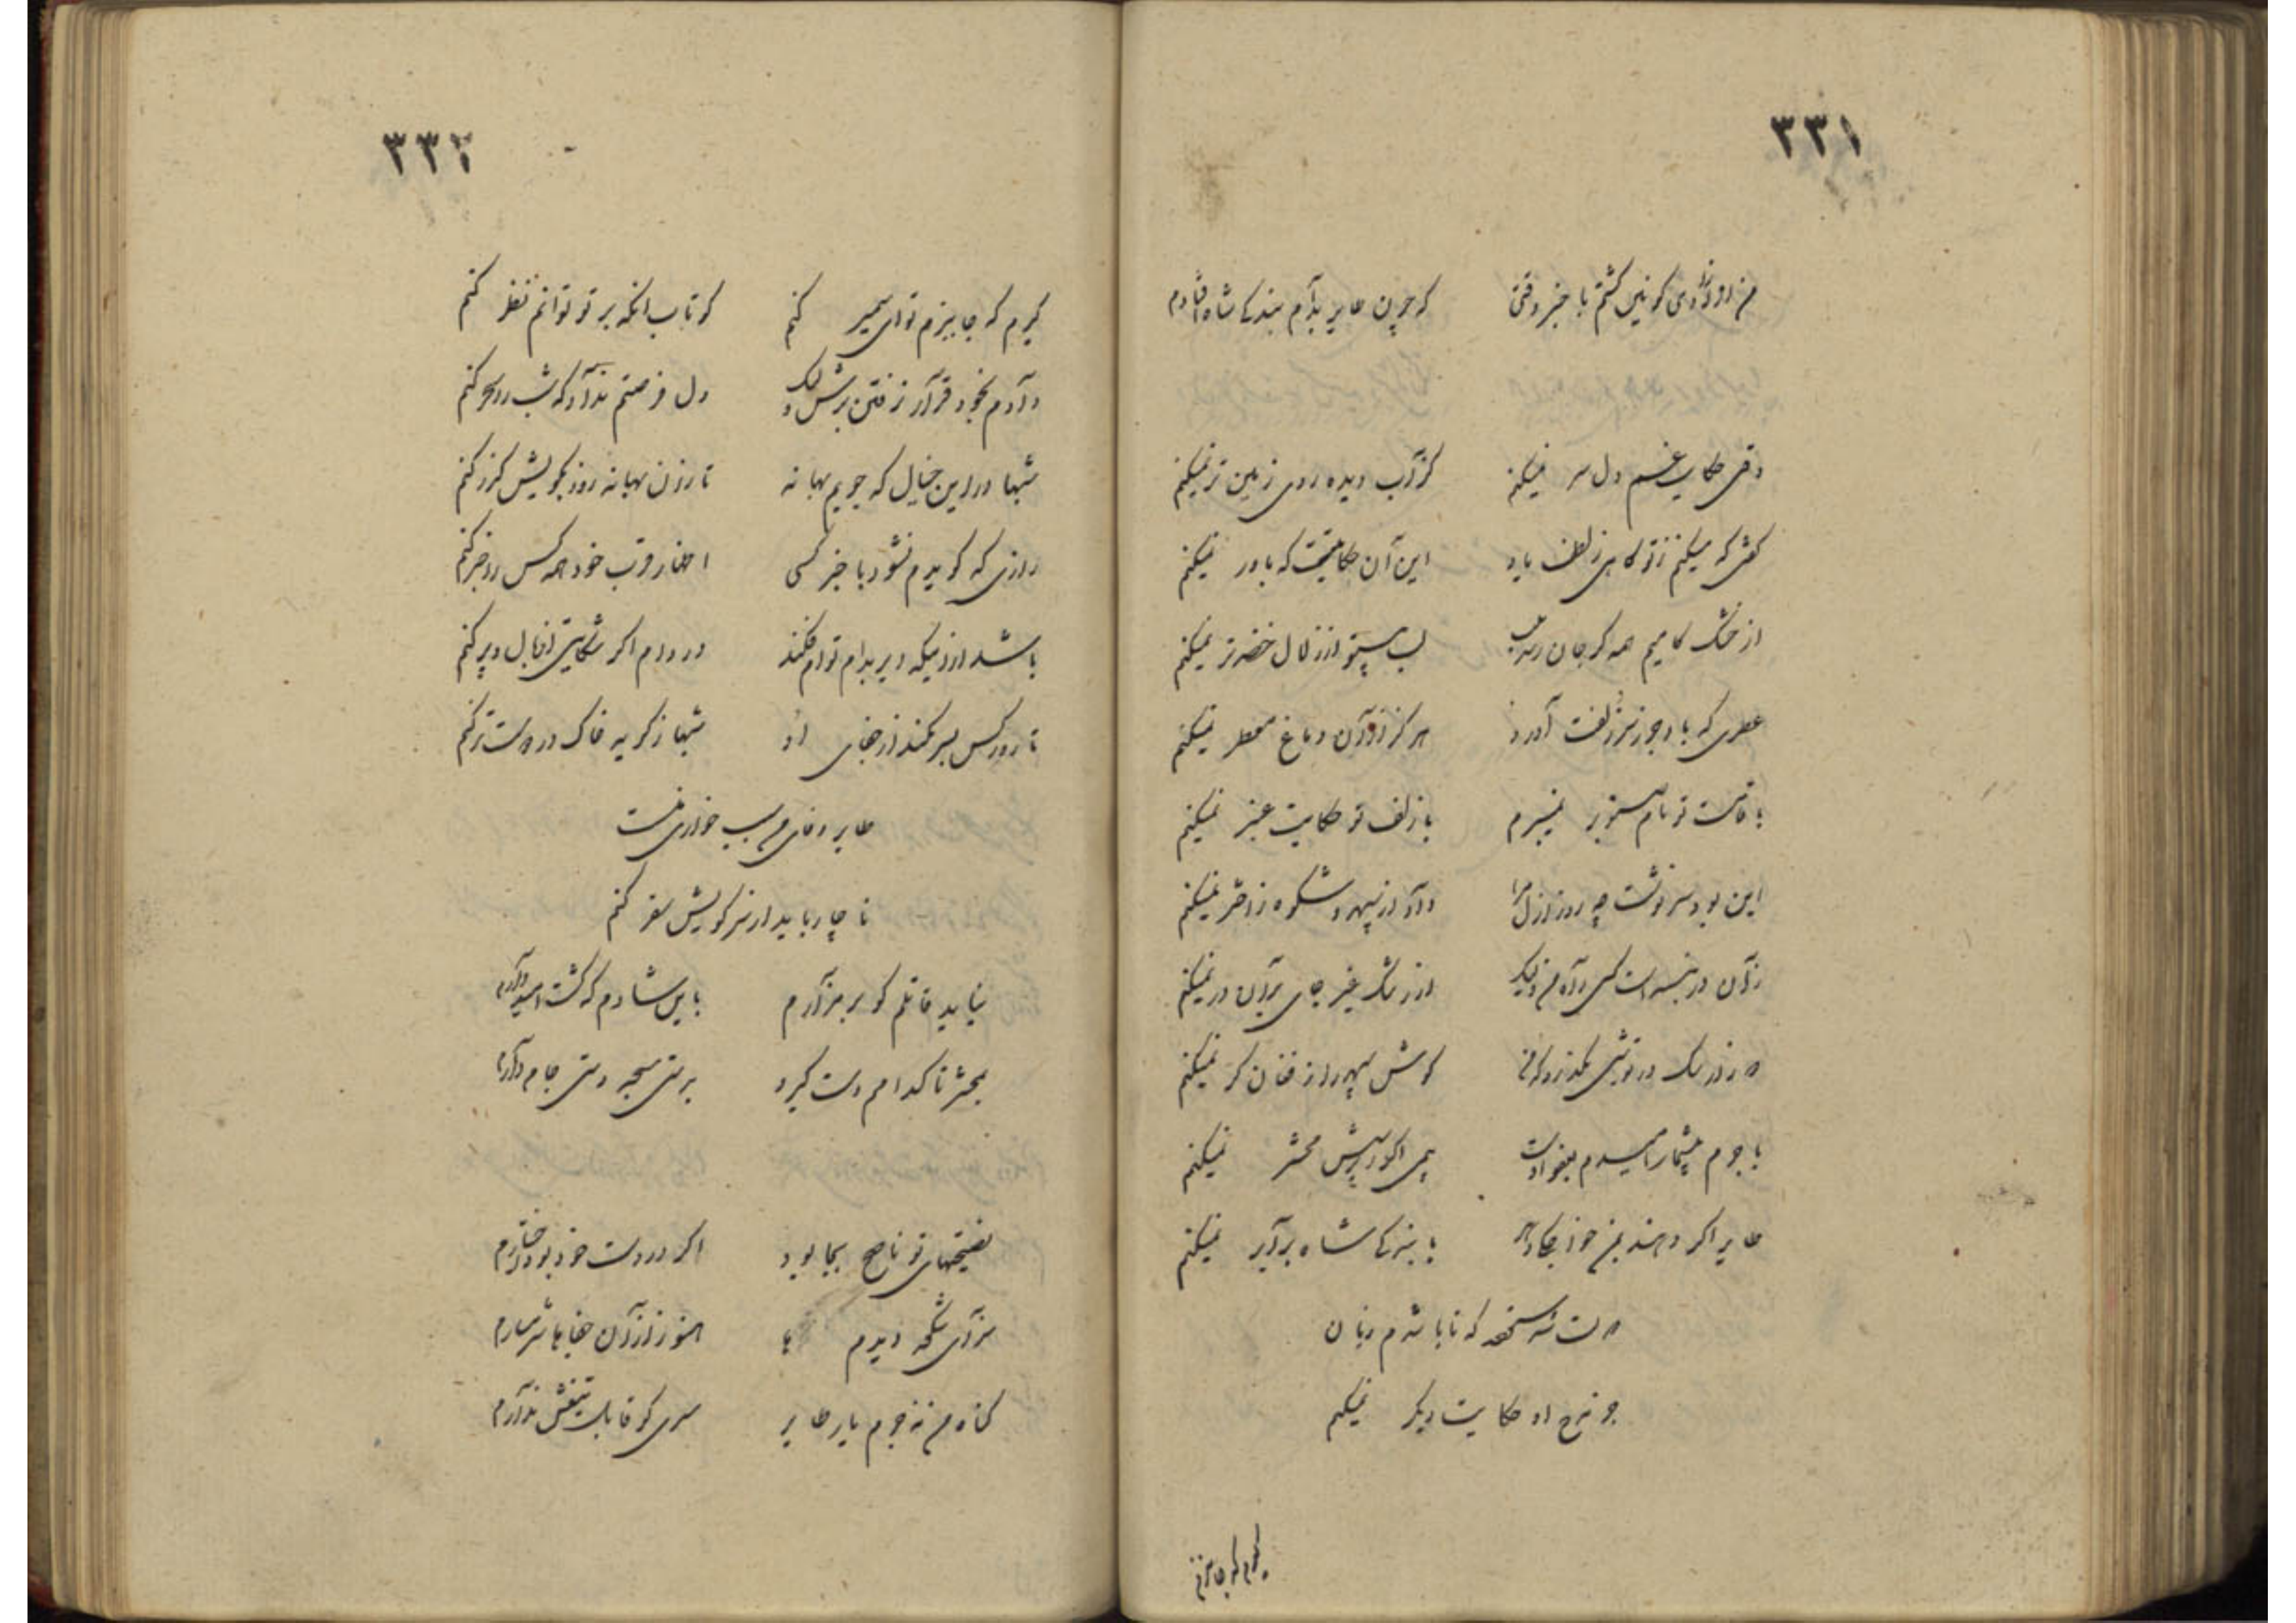 ۳۳۱
من روز وی کونین کشتم با خبر وقتی که چون طایر بدام بندکی شاه افتادم
وقتی حکایت غم دل سر نمیکنم کز آب دیده روی زمین تر نمیکنم
کفتی که میکنم ز تو کاهی بلطف یاد این آن حکایتیست که باور نمیکنم
از خشک کامیم همه کر جان رسد بلب لب تر از زلال خضر تر نمیکنم
عطری که باد جز ز سر زلفت آورد هرکز از آن دماغ معطر نمیکنم
با قامت تو نام صنوبر نمیبرم با زلف تو حکایت عنبر نمیکنم
این بود سرنوشت چه روز ازل مرا داد از سپهر و شکوه ز اختر نمیکنم
زآن در نبسته است کسی راه من ولیک از رشک غیر جای بر آن در نمیکنم
روزیکه در کوش سپهر را ز فغان کر نمیکنم
با جرم بیشمار امیدم بعفو اوست بیمی از پرسش محشر نمیکنم
طایر اکر دهند بمن خواجکی دهر با بندکی شاه برابر نمیکنم
که تا باشدم زبان
جز مدح او حکایت دیکر نمیکنم
کیرم که جا ببزم
۳۳۲
کیرم که جا ببزم تو ای سیمبر کنم کو تاب آنکه بر تو توانم نظر کنم
دادم بخود قرار نرفتن برش ولیک دل فرصتم نداد که شب را سحر کنم
شبها در این خیال که جویم بهانه تا زان بهانه روز بکویش کذر کنم
روزی که کویدم نشود با خبر کسی اظهار قرب خود همه کس را خبر کنم
باشد از اینکه دیر بدام توام فکند در دام اکر شکایتی از بال و پر کنم
تا رو کس بسر نکند از جفای او شبها ز کریه خاک در دوست تر کنم
طایر وفای من سبب خواری منست
ناچار باید از سر کویش سفر کنم
نیاید قاتلم کو بر مزارم باین شادم که کشت امیدوارم
بحشر تا کدامم دست کیرد بدستی سبحه دستی جام دارم
نصیحتهای تو ناصح بجا بود اکر در دست خود بود اختیارم
سزای شکوه دیدم هنوز از آن جفاها شرمسارم
کناه من نه جرم یار طایر سری کو قابل تیغش ندارم